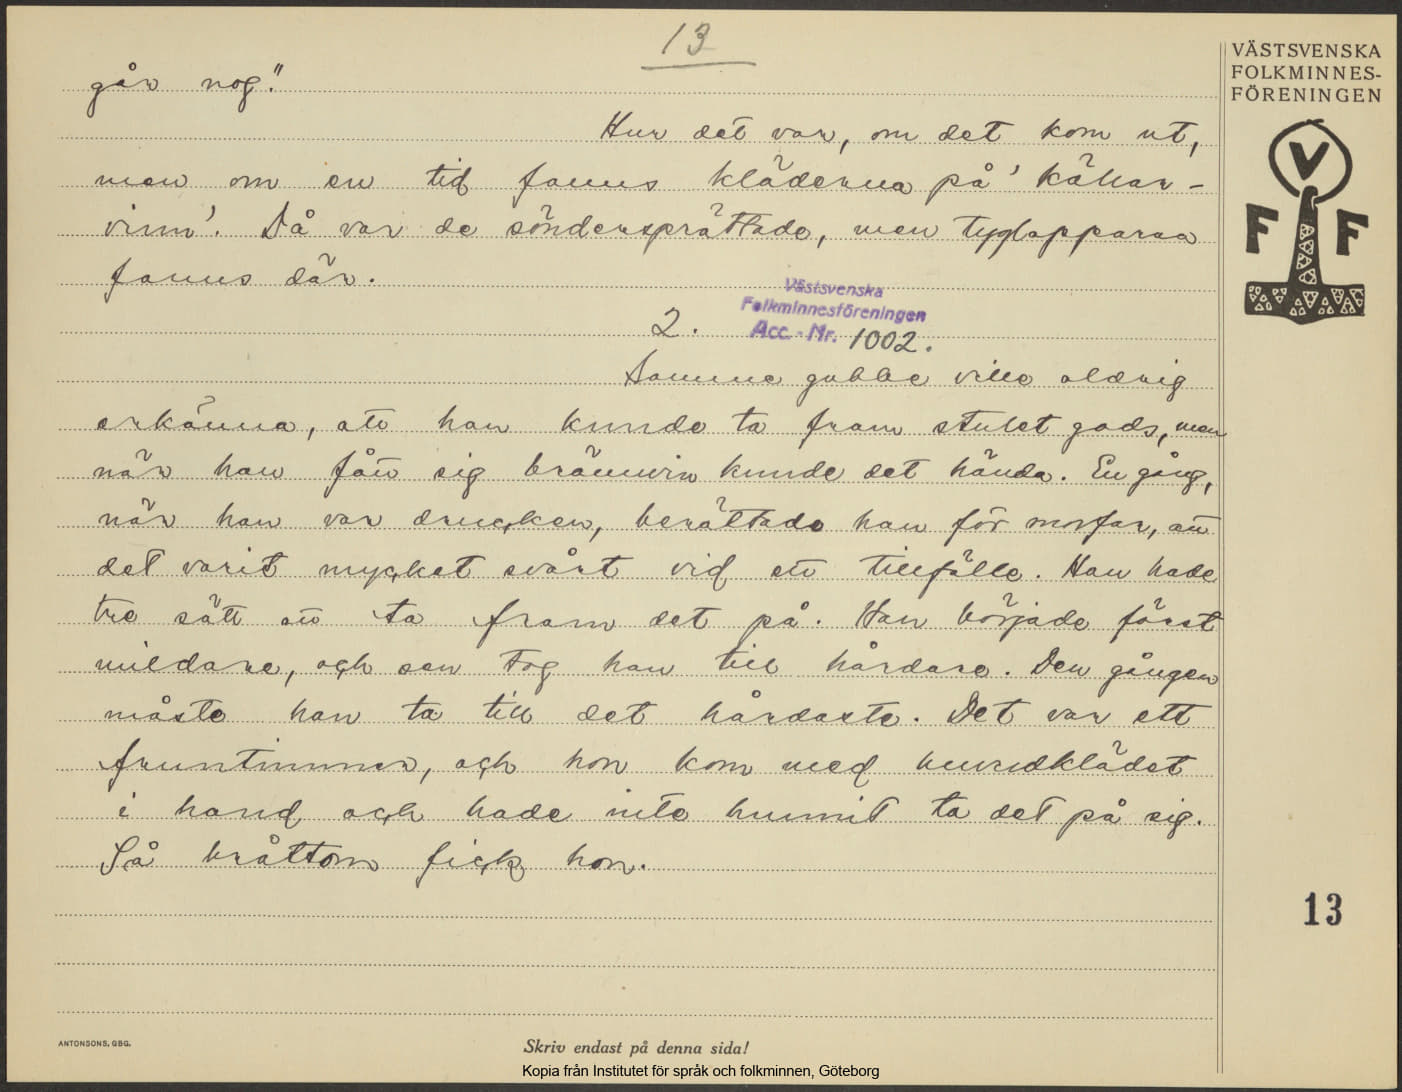 13
går nog."
Hur det var, om det kom ut,
men om en tid fanns kläderna på 'källar-
vinn'. Då var de söndersprättade, men tyglapparna
fanns där.
Västsvenska
Folkminnesföreningen
Acc. - Nr. 1002.
2.
Samme gubbe ville aldrig
erkänna, att han kunde ta fram stulet gods, men
när han fått sig brännvin kunde det hända. En gång,
när han var drucken, berättade han för morfar, att
det varit mycket svårt vid ett tillfälle. Han hade
tre sätt att ta fram det på. Han började först
mildare, och sen tog han till hårdare. Den gången
måste han ta till det hårdaste. Det var ett
fruntimmer, och hon kom med huvudklädet
i hand och hade inte hunnit ta det på sig.
Så bråttom fick hon.
VÄSTSVENSKA
FOLKMINNES-
FÖRENINGEN
V
F F
13
ANTONSONS, GBG.
Skriv endast på denna sida!
Kopia från Institutet för språk och folkminnen, Göteborg